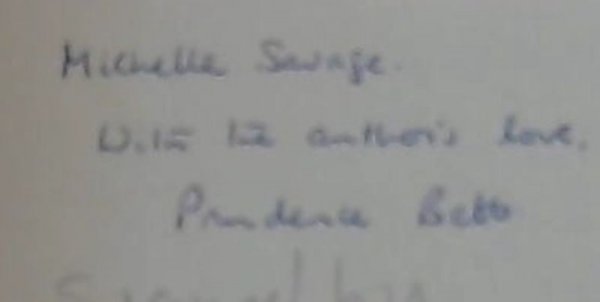 Michelle Savage.
With the author's love,
Prudence Bebb
Signed by